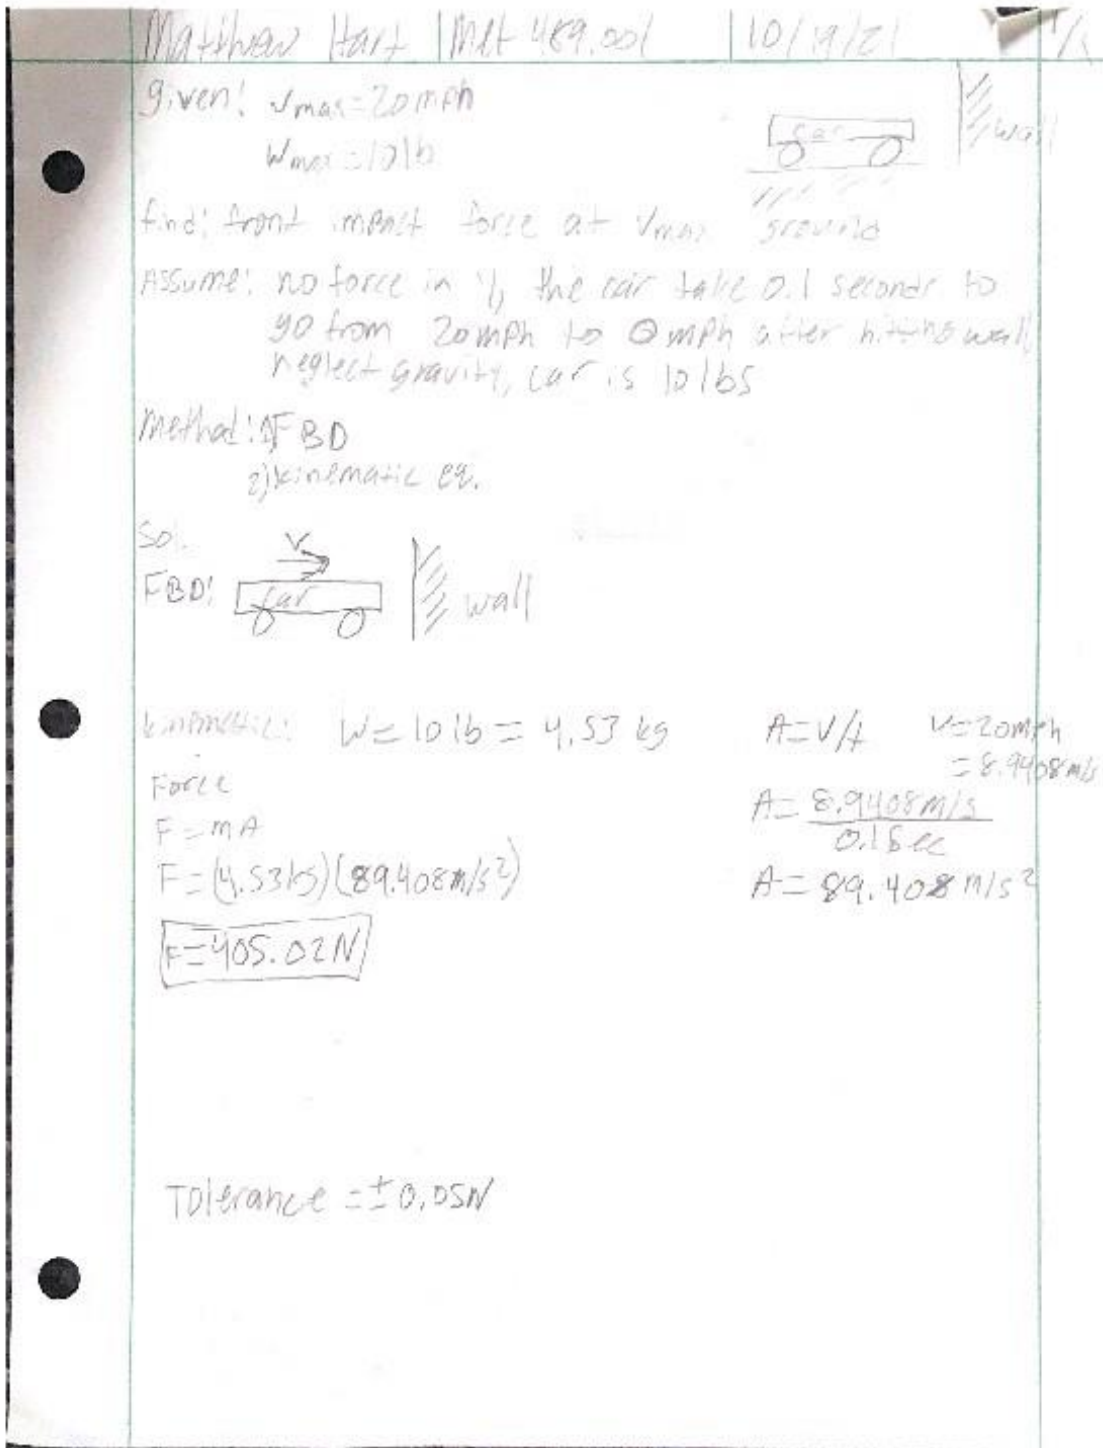 Matthew Hart | Met 489.001 | 10/19/21 1/1
given: Vmax=20mph
Wmax=10lb
car
wall
find: front impact force at Vmax
ground
Assume: no force in y, the car take 0.1 seconds to
go from 20mph to 0mph after hitting wall,
neglect gravity, car is 10lbs
Method: 1) FBD
2) kinematic eq.
Sol.
V
FBD: car wall
kinematic: W=10lb=4.53 kg
A=V/t V=20mph
=8.9408m/s
Force
F=mA
A=8.9408m/s
0.1sec
F=(4.53kg)(89.408m/s²)
A=89.408m/s²
F=405.02N
Tolerance=±0.05N